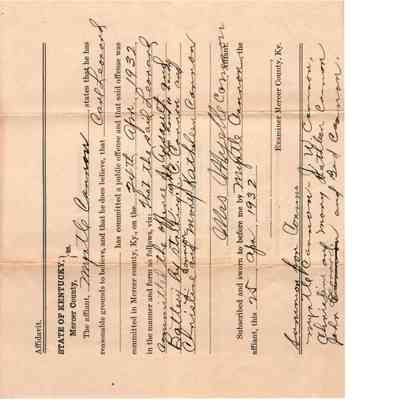 Affidavit.
STATE OF KENTUCKY,
Mercer County. } ss.
The affiant, Myrtle Cannon, states that he has
reasonable grounds to believe, and that he does believe, that Carl Leonard
has committed a public offense and that said offense was
committed in Mercer county, Ky., on the 24th Apr, 1932
in the manner and form as follows, viz: that the said Leonard
committed the offence of assault and
Battery by striking J. W. Cannon and
Christine and Mary Kathleen Cannon
Miss Myrtle Cannon Affiant.
Subscribed and sworn to before me by Myrtle Cannon, the
affiant, this 25 Apr 1932.
Examiner Mercer County, Ky.
Summons for Comm
Myrtle Cannon J. W. Cannon,
Christine and Mary Kathleen Cannon
John and Cannon.